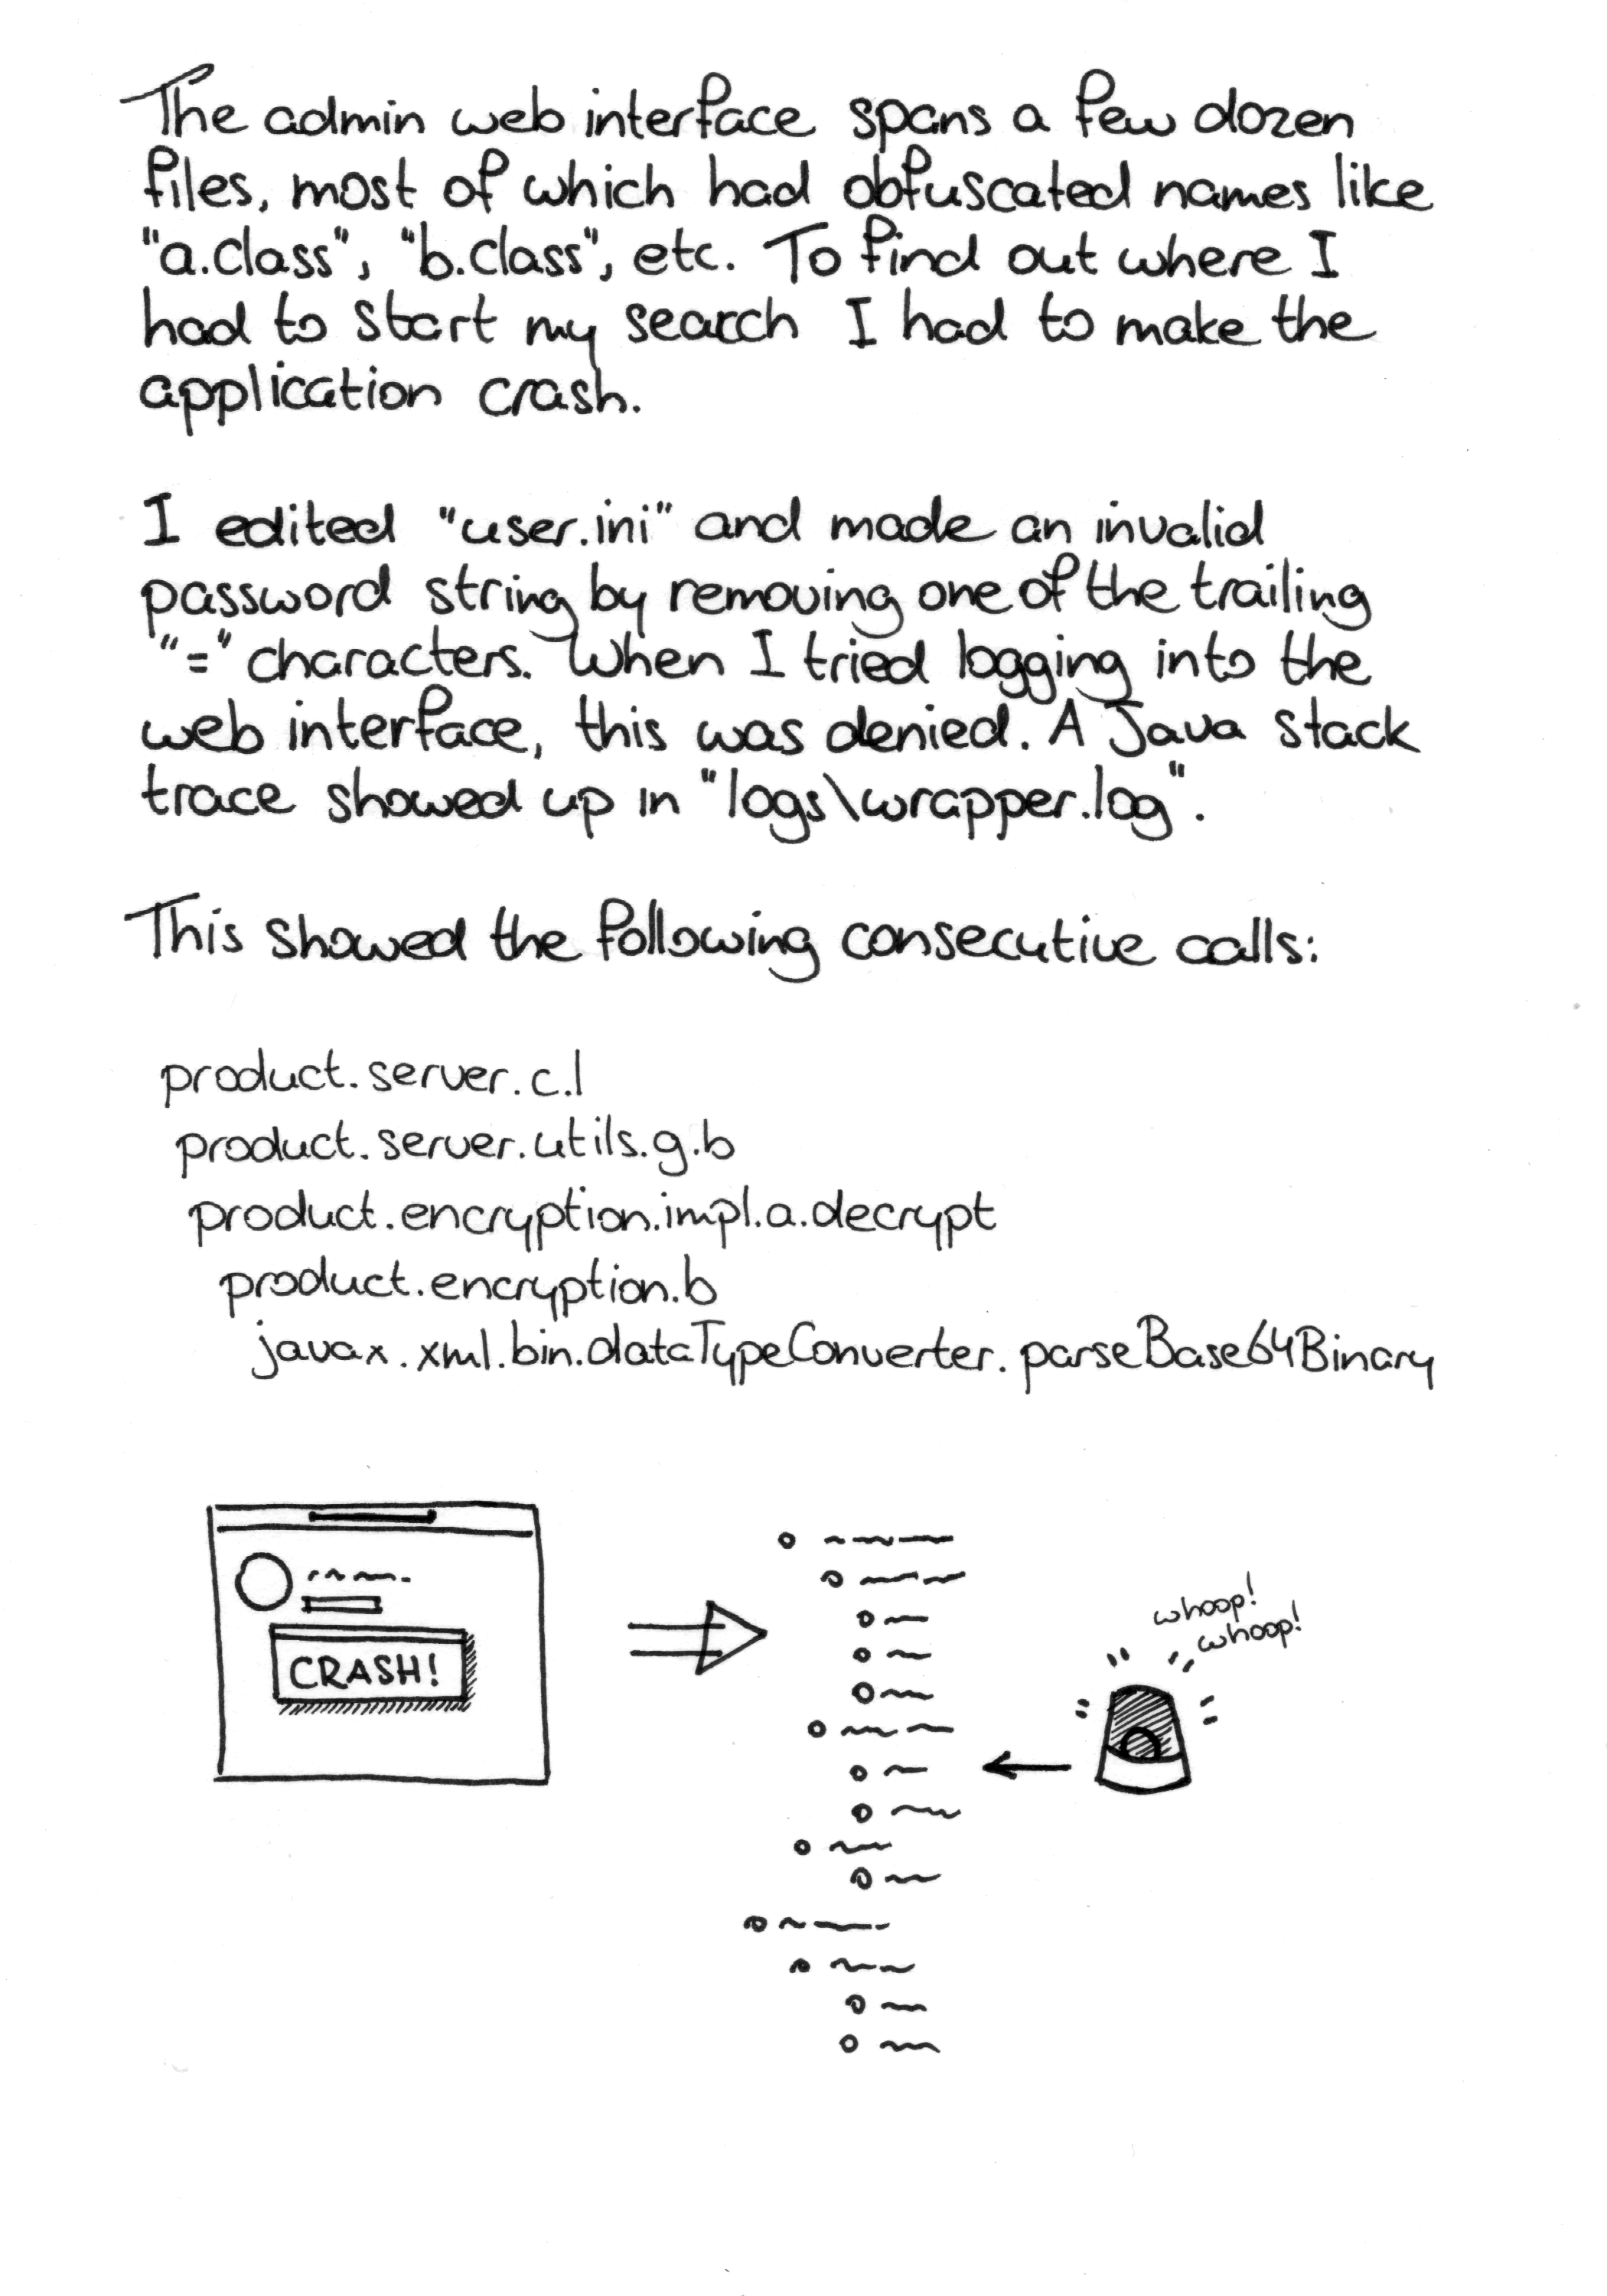 The admin web interface spans a few dozen
files, most of which had obfuscated names like
"a.class", "b.class", etc. To find out where I
had to start my search I had to make the
application crash.
I edited "user.ini" and made an invalid
password string by removing one of the trailing
"=" characters. When I tried logging into the
web interface, this was denied. A Java stack
trace showed up in "logs\wrapper.log".
This showed the following consecutive calls:
product.server.c.l
product.server.utils.g.b
product.encryption.impl.a.decrypt
product.encryption.b
javax.xml.bin.dataTypeConverter.parseBase64Binary
CRASH!
whoop!
whoop!